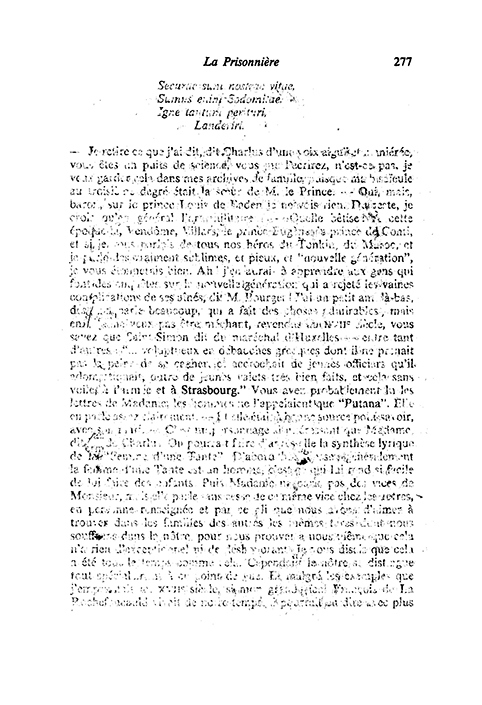 La Prisonnière 277
Securae sunt nostrae vitae,
Sumus enim Sodomitae,
Igne tantum perituri,
Landeriri.
— Je retire ce que j'ai dit, dit Charlus d'une voix aiguë et maniérée,
vous êtes un puits de science, vous me l'écrirez, n'est-ce pas, je
veux garder cela dans mes archives de famille, puisque ma bisaïeule
au troisième degré était la sœur de M. le Prince. — Oui, mais,
baron, sur le prince Louis de Baden je ne vois rien. Du reste, je
crois qu'en général l'art militaire — Quelle bêtise cette
époque-là, Vendôme, Villars, le prince Eugène, le prince de Conti,
et si je vous parlais de tous nos héros du Tonkin, du Maroc, et
je parle des vraiment sublimes, et pieux, et "nouvelle génération",
je vous étonnerais bien. Ah! j'en aurais à apprendre aux gens qui
font des enquêtes sur la nouvelle génération qui a rejeté les vaines
complications de ses aînés, dit M. Bourget! J'ai un petit ami là-bas,
dont on parle beaucoup, qui a fait des choses admirables, mais
enfin je ne veux pas être méchant, revenons au XVIIe siècle, vous
savez que Saint-Simon dit du maréchal d'Huxelles — entre tant
d'autres : "... voluptueux en débauches grecques dont il ne prenait
pas la peine de se cacher, il accrochait de jeunes officiers qu'il
adomestiquait, outre de jeunes valets très bien faits, et cela sans
voile, à l'armée et à Strasbourg." Vous avez probablement lu les
lettres de Madame, les hommes ne l'appelaient que "Putana". Elle
en parle assez clairement. — Et elle était à bonne source pour savoir,
avec son mari. — C'est un personnage si intéressant que Madame,
dit M. de Charlus. On pourrait faire d'après elle la synthèse lyrique
de la "Femme d'une Tante". D'abord hommasse; généralement
la femme d'une Tante est un homme, c'est ce qui lui rend si facile
de lui faire des enfants. Puis Madame ne parle pas des vices de
Monsieur, mais elle parle sans cesse de ce même vice chez les autres,
en personne renseignée et par ce pli que nous avons d'aimer à
trouver dans les familles des autres les mêmes tares dont nous
souffrons dans la nôtre, pour nous prouver à nous-même que cela
n'a rien d'exceptionnel ni de déshonorant. Je vous disais que cela
a été tout le temps comme cela. Cependant le nôtre se distingue
tout spécialement à ce point de vue. Et malgré les exemples que
j'empruntais au XVIIe siècle, si mon grand aïeul François de La
Rochefoucauld vivait de notre temps, il pourrait en dire avec plus